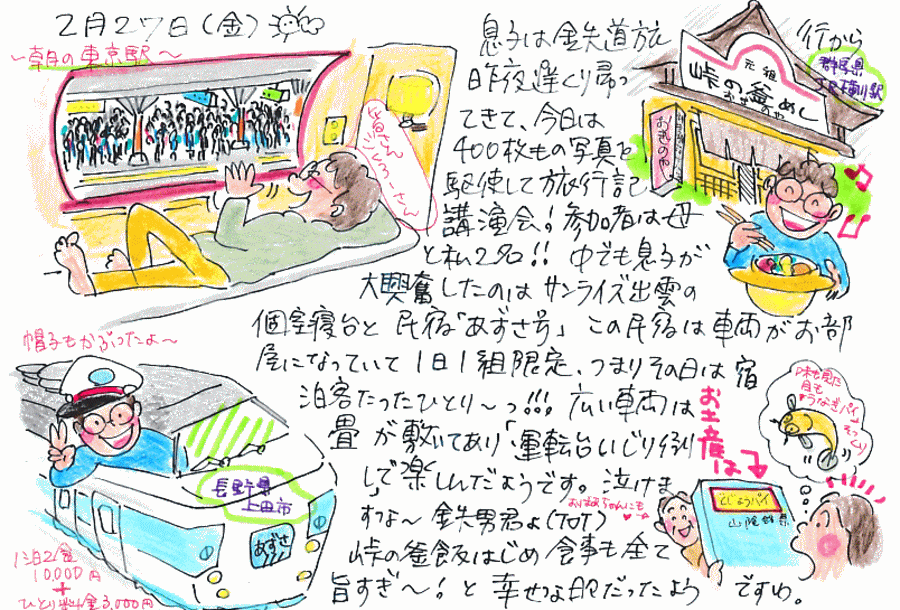 2月27日(金)
～朝の東京駅～
皆さんごくろーさん
息子は鉄道旅行から
昨夜遅くり帰っ
てきて、今日は
400枚もの写真を
駆使して旅行記
講演会！参加者は母
と私2名!! 中でも息子が
大興奮したのは サンライズ出雲の
個室寝台と 民宿「あずさ号」 この民宿は車両がお部
屋になっていて 1日1組限定、つまりその日は宿
泊客たったひとり～っ!!! 広い車両は
畳が敷いてあり「運転台いじり。」
して楽しんだようです。泣けま
すな～ 鉄男君よ(ToT)
峠の釜飯はじめ食事も全て
旨すぎ～！と 幸せな旅だったよう ですわ。
群馬県
JR横川駅
元祖
峠の釜めし
おぎのや
おぎのや
帽子もかぶったよ～
長野県
上田市
あずさ
1泊2食
10,000円
+
ひとり料金3,000円
お土産は
おばあちゃんにも
どじょうパイ
山陰
味も見た
目も
うなぎパイ
そっくり